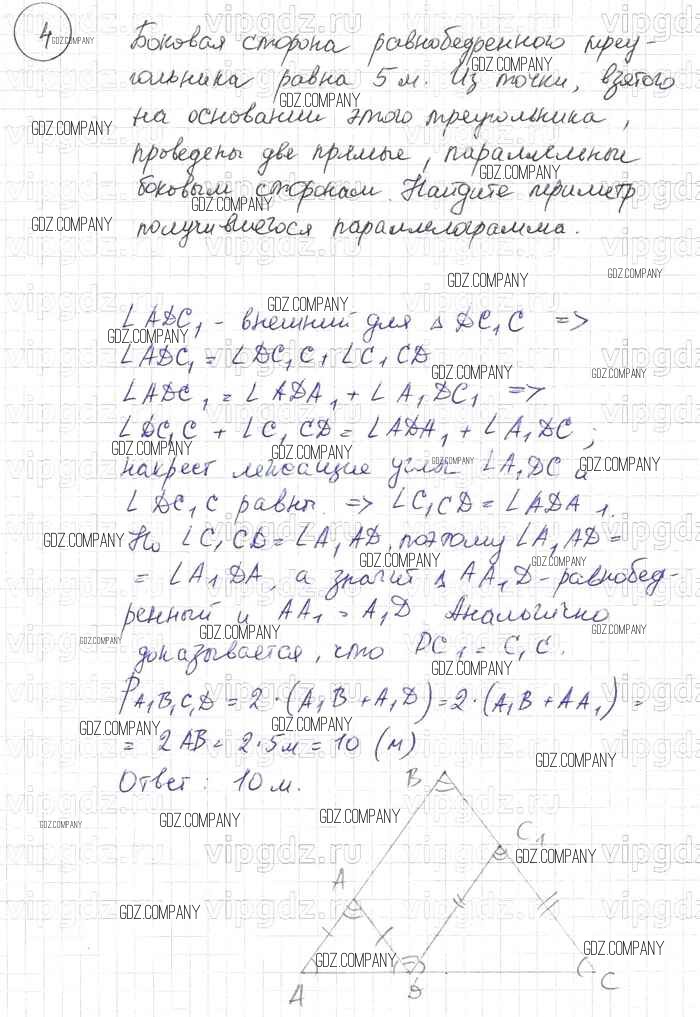 4
Боковая сторона равнобедренного треу-
гольника равна 5 м. Из точки, взятого
на основании этого треугольника,
проведены две прямые, параллельны
боковым сторонам. Найдите периметр
получившегося параллелограмма.
∠ADC₁ - внешний для △ DC₁C =>
∠ADC₁ = ∠DC₁C + ∠C₁CD
∠ADC₁ = ∠ADA₁ + ∠A₁DC₁ =>
∠DC₁C + ∠C₁CD = ∠ADA₁ + ∠A₁DC₁;
накрест лежащие углы ∠A₁DC и
∠DC₁C равны. => ∠C₁CD = ∠ADA₁.
Но ∠C₁CD = ∠A₁AD, поэтому ∠A₁AD =
= ∠A₁DA, а значит △ AA₁D - равнобед-
ренный и AA₁ = A₁D. Аналогично
доказывается, что DC₁ = C₁C.
P A₁B₁C₁D = 2 · (A₁B + A₁D) = 2 · (A₁B + AA₁) =
= 2AB = 2 · 5м = 10 (м)
Ответ: 10 м.
B
C₁
A
A
D
C
GDZ.COMPANY
vipgdz.ru